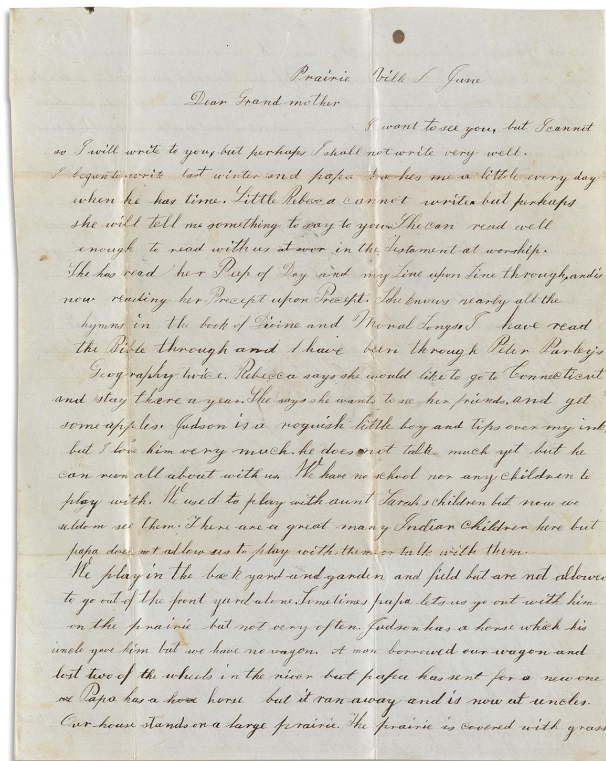 Prairie Ville June
Dear Grand mother
I want to see you, but I cannot
so I will write to you, but perhaps I shall not write very well.
I began to write last winter and papa teaches me a little every day
when he has time. Little Rebecca cannot write but perhaps
she will tell me something to say to you. She can read well
enough to read with us at wor in the Testament at worship.
She has read her Peep of Day and my Line upon Line through, and is
now reading her Precept upon Precept. She knows nearly all the
hymns in the book of Divine and Moral Songs. I have read
the Bible through and I have been through Peter Parley's
Geography twice. Rebecca says she would like to go to Connecticut
and stay there a year. She says she wants to see her friends, and get
some apples. Judson is a roguish little boy and tips over my ink,
but I love him very much. he does not talk much yet but he
can run all about with us. We have no school nor any children to
play with. We used to play with aunt Sarahs children but now we
seldom see them. There are a great many Indian children here but
papa does not allow us to play with them or talk with them.
We play in the back yard and garden and field but are not allowed
to go out of the front yard alone. Sometimes papa lets us go out with him
on the prairie but not very often. Judson has a horse which his
uncle gave him but we have no wagon. A man borrowed our wagon and
lost two of the wheels in the river but papa has sent for a new one
Papa has a horse but it ran away and is now at uncles.
Our house stands on a large prairie. The prairie is covered with grass